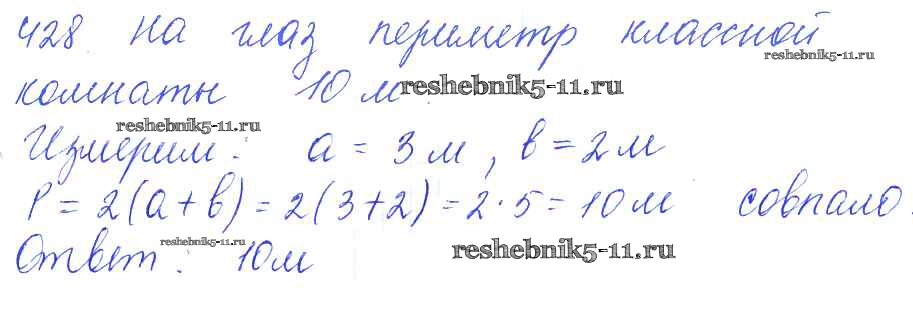 428 На глаз периметр классной
reshebnik5-11.ru
комнаты 10 м. reshebnik5-11.ru
reshebnik5-11.ru
Измерим: a = 3 м, b = 2 м
P = 2(a + b) = 2(3+2) = 2 · 5 = 10 м совпало.
reshebnik5-11.ru
Ответ: 10 м reshebnik5-11.ru